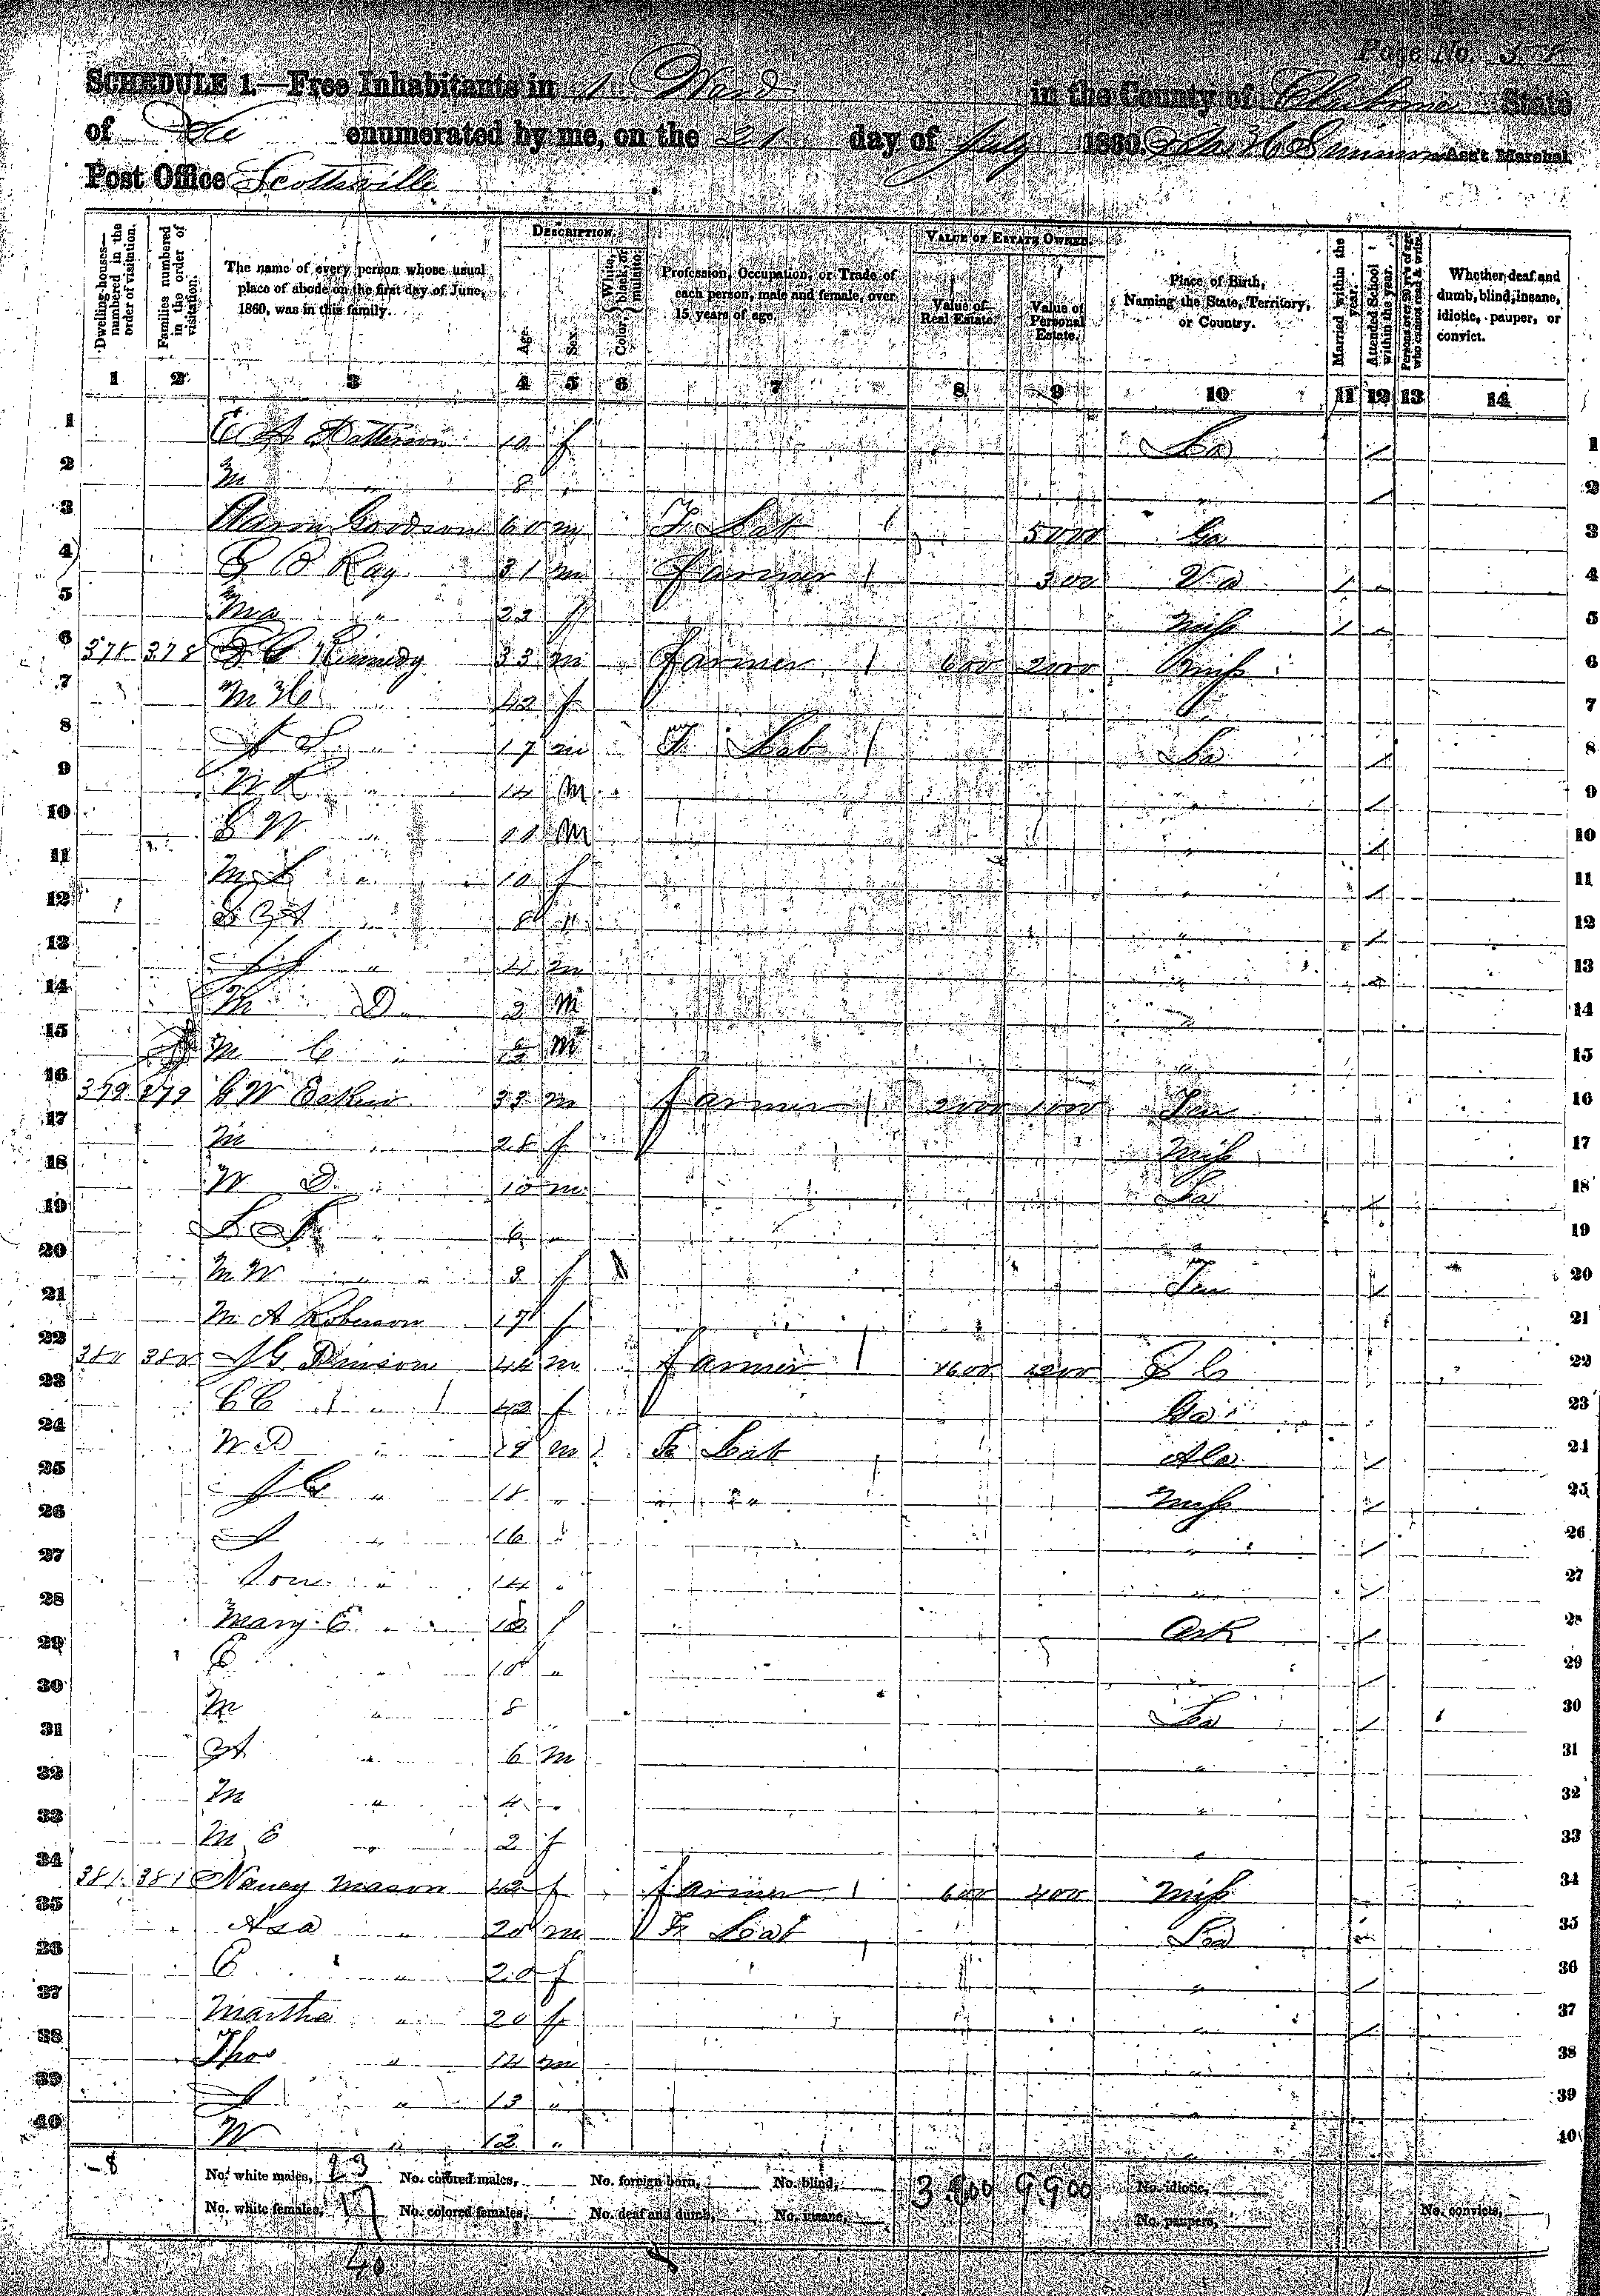 Page No. 58
SCHEDULE 1.—Free Inhabitants in 1 Ward in the County of Claiborne State
of La enumerated by me, on the 21 day of July 1860. Ass't Marshal.
Post Office Scottsville
Dwelling-houses—numbered in the order of visitation.
Families numbered in the order of visitation.
The name of every person whose usual place of abode on the first day of June, 1860, was in this family.
DESCRIPTION.
Age.
Sex.
Color, White, black, or mulatto.
Profession, Occupation, or Trade of each person, male and female, over 15 years of age.
VALUE OF ESTATE OWNED.
Value of Real Estate.
Value of Personal Estate.
Place of Birth, Naming the State, Territory, or Country.
Married within the year.
Attended School within the year.
Persons over 20 y'rs of age who cannot read & write.
Whether deaf and dumb, blind, insane, idiotic, pauper, or convict.
1 2 3 4 5 6 7 8 9 10 11 12 13 14
1 E A Patterson 10 f La / 1
2 M " 8 " " / 2
3 Aaron Goodson 60 m F Lab 5000 Ga 3
4 G B Ray 31 m Farmer 300 Va 1 4
5 Ma " 23 f Miss 1 5
6 378 378 Kennedy 33 m Farmer 600 2000 Miss 6
7 M H 42 f 7
8 J S " 17 m F Lab La / 8
9 W R " 14 M " / 9
10 G W " 11 M " / 10
11 M L " 10 f " / 11
12 8 " " / 12
13 " 4 m " 13
14 M D 2 M " 14
15 M C " 6/12 M " 15
16 379 379 G W Eakin 33 m farmer 2000 1000 Ten 16
17 M " 28 f Miss 17
18 W D " 10 m La / 18
19 " 6 " " 19
20 M W " 3 f Ten / 20
21 M A Roberson 17 f 21
22 380 380 J G Dinson 44 m farmer 1600 1200 S C 22
23 C C " 42 f Ga 23
24 W D " 19 m F Lab Ala / 24
25 J C " 18 " " " Miss / 25
26 J " 16 " " / 26
27 " 14 " " / 27
28 Mary E " 12 f Ark / 28
29 E " 10 " / 29
30 M " 8 La / 30
31 A " 6 m " 31
32 M " 4 " " 32
33 M E " 2 f " 33
34 381 381 Nancy Mason 42 f farmer 600 400 Miss 34
35 Asa " 20 m F Lab La 35
36 E " 20 f " / 36
37 Martha " 20 f " / 37
38 Thos " 14 m " 38
39 J " 13 " " 39
40 W " 12 " " 40
8 No. white males, 23 No. colored males, No. foreign born, No. blind, 9.900 No. idiotic,
No. white females, 17 No. colored females, No. deaf and dumb, No. insane, No. paupers, No. convicts,
40